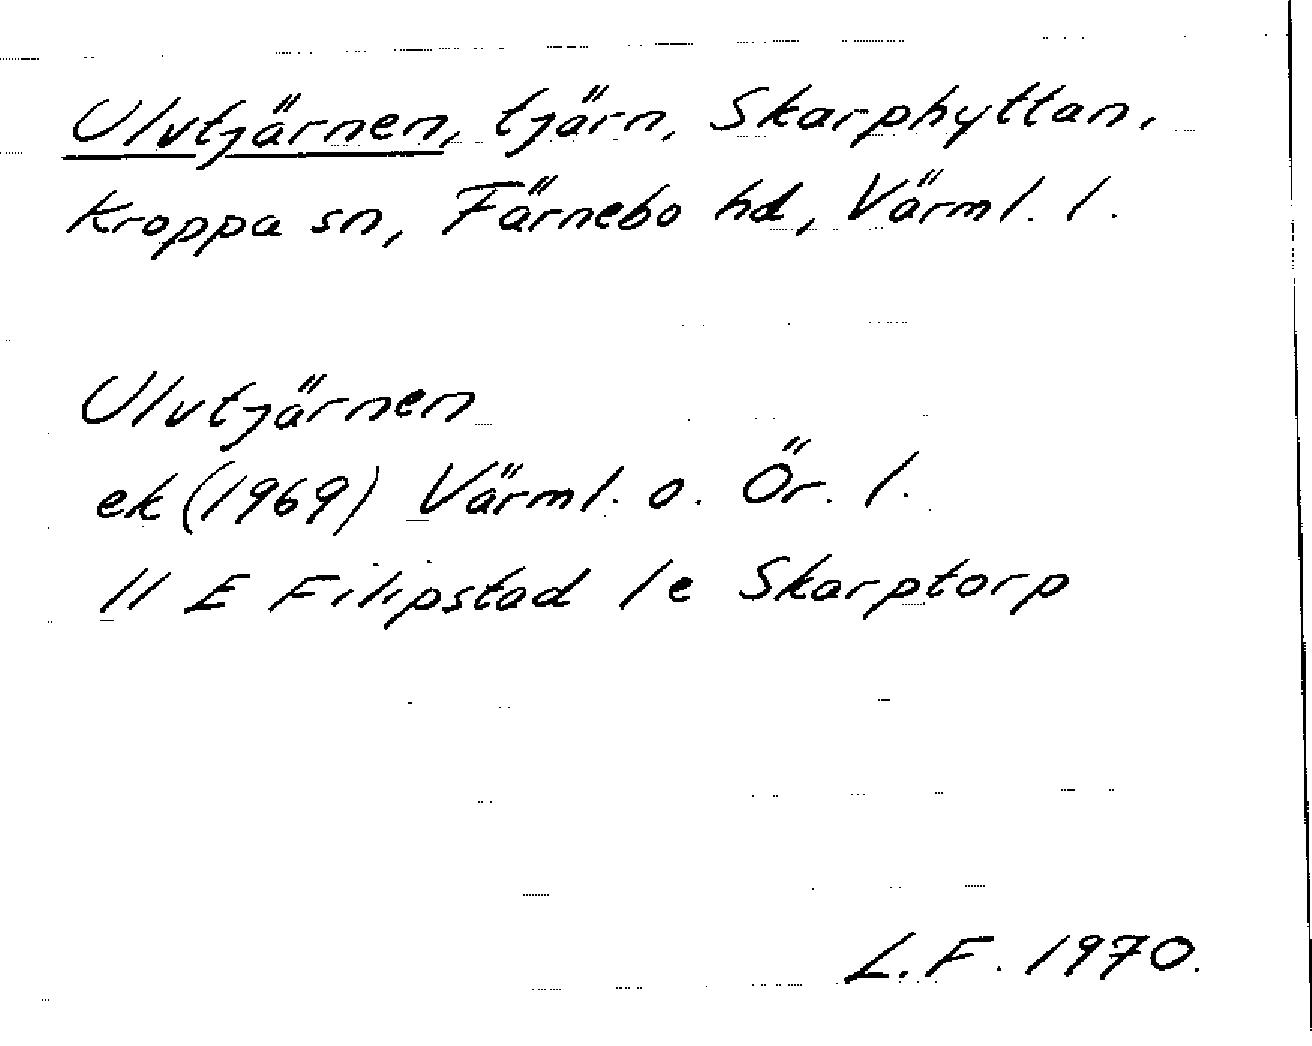 Ulvtjärnen, tjärn, Skarphyttan,
Kroppa sn, Färnebo hd, Värml. l.
Ulvtjärnen
ek (1969) Värml. o. Ör. l.
11 E Filipstad 1e Skarptorp
L.F. 1970.